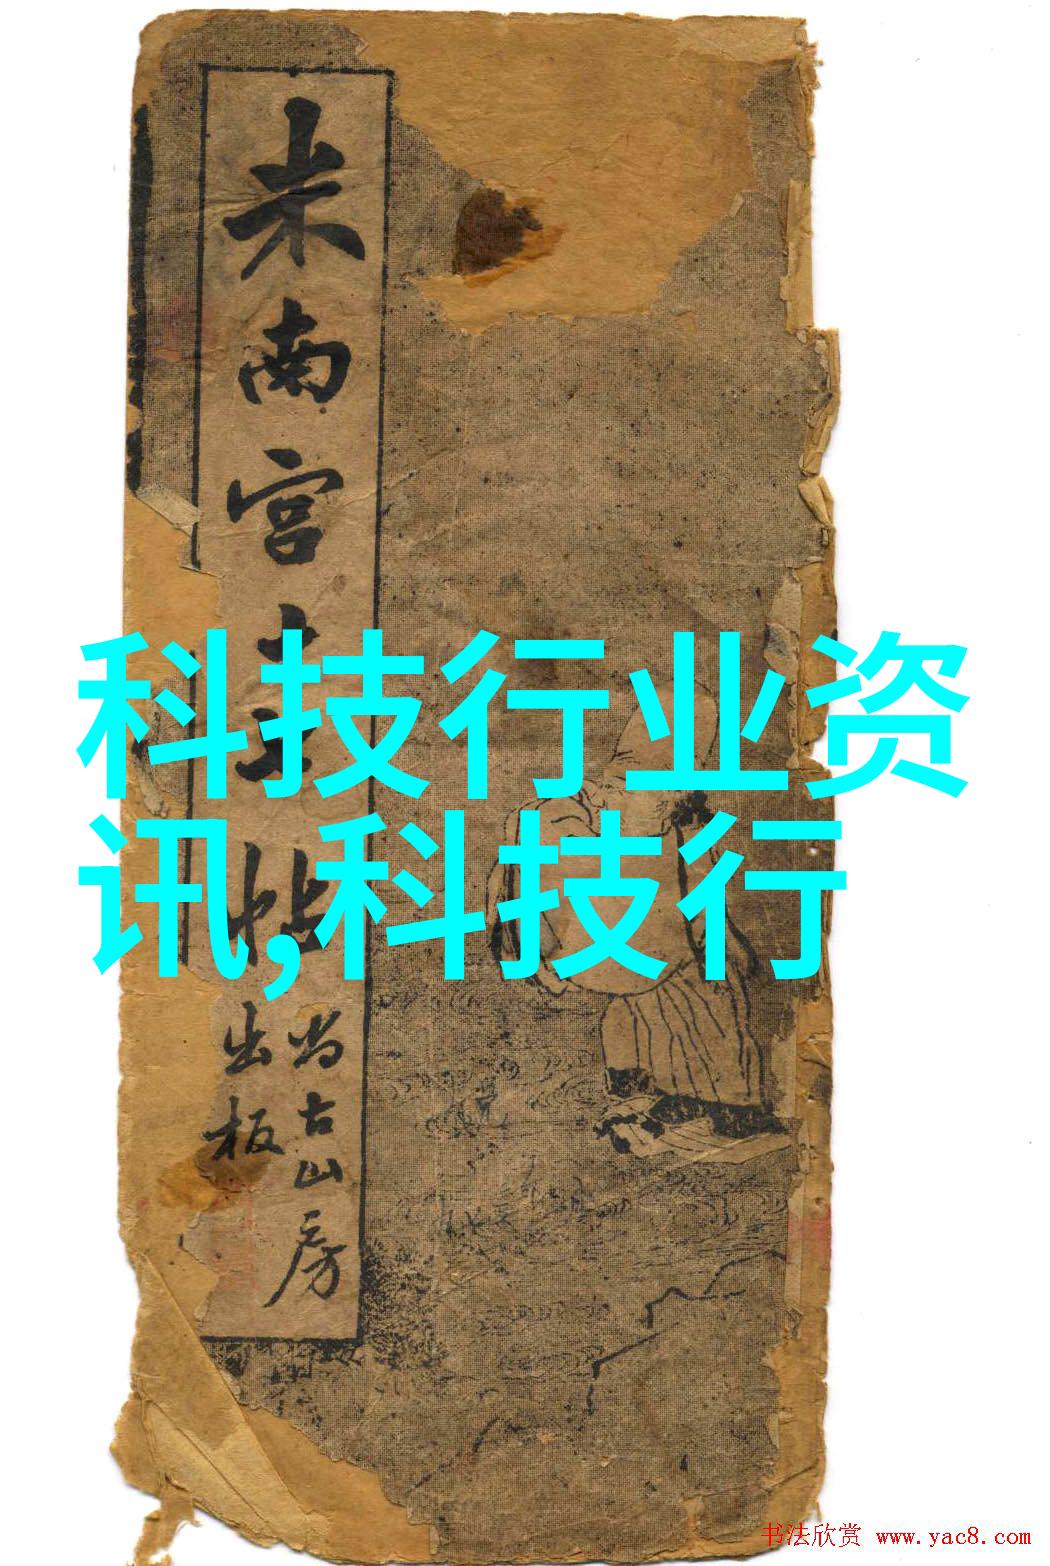 米南宫
帖
科技行业资
讯,科技行
尚古山房
出版
书法欣赏 www.yac8.com